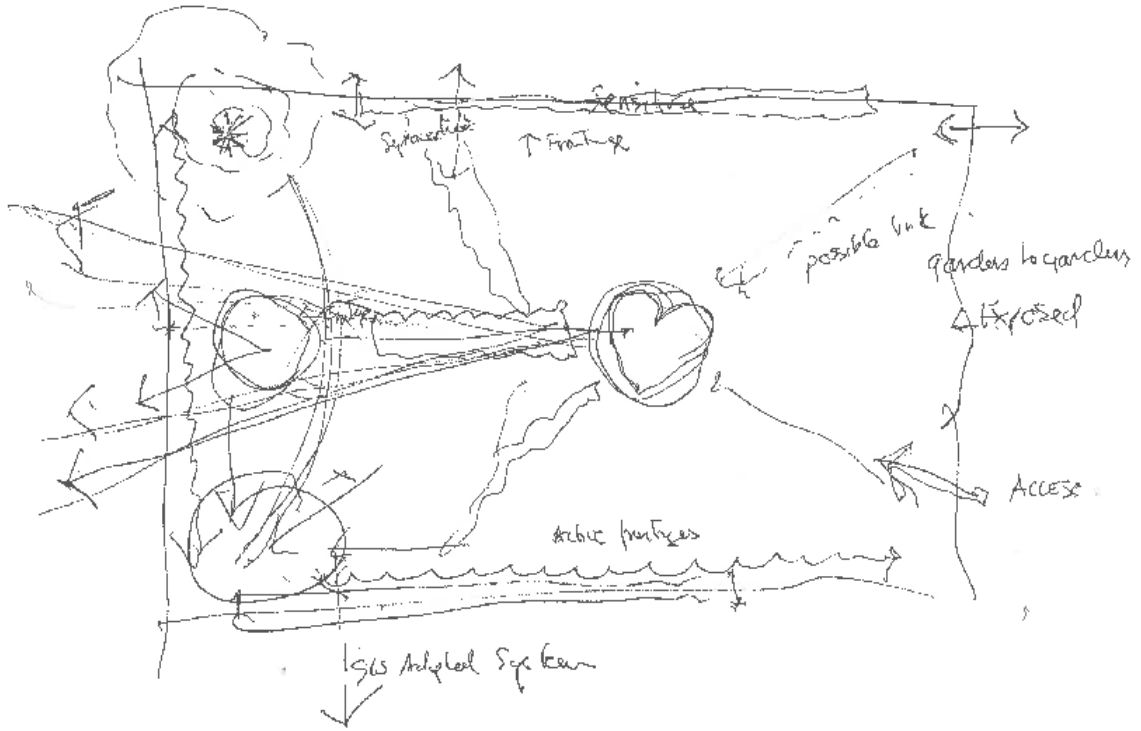 Sensitive
↑ Frontage
possible link
gardens to gardens
Exposed
Access
Active frontages
System